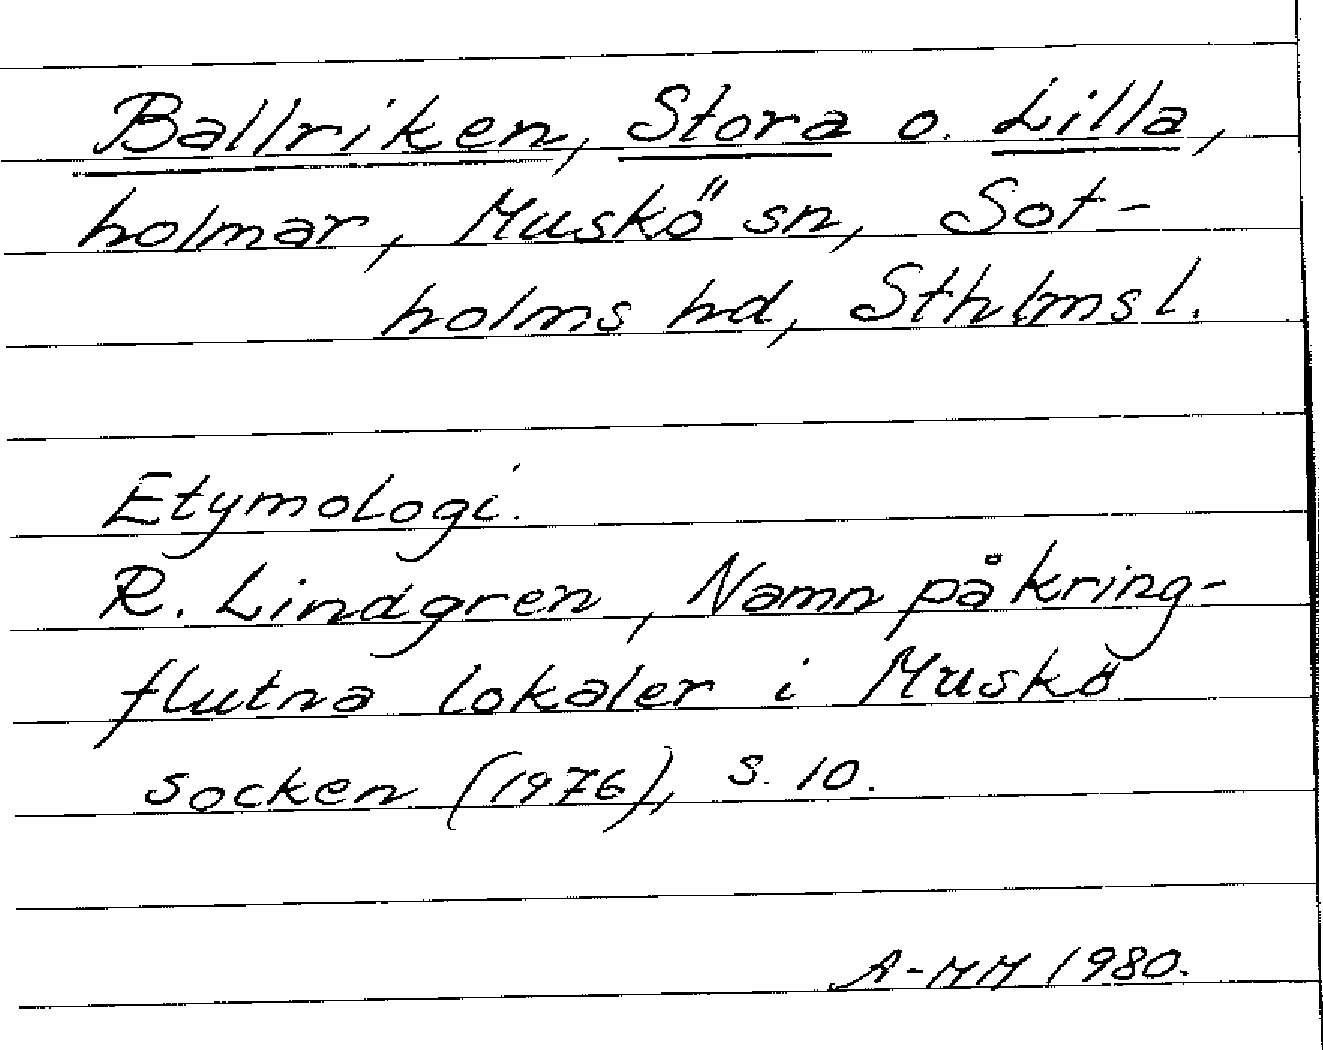 Ballriken, Stora o. Lilla,
holmar, Muskö sn, Sot-
holms hd, Sthlms l.
Etymologi.
R. Lindgren, Namn på kring-
flutna lokaler i Muskö
socken (1976), s. 10.
A-MM 1980.